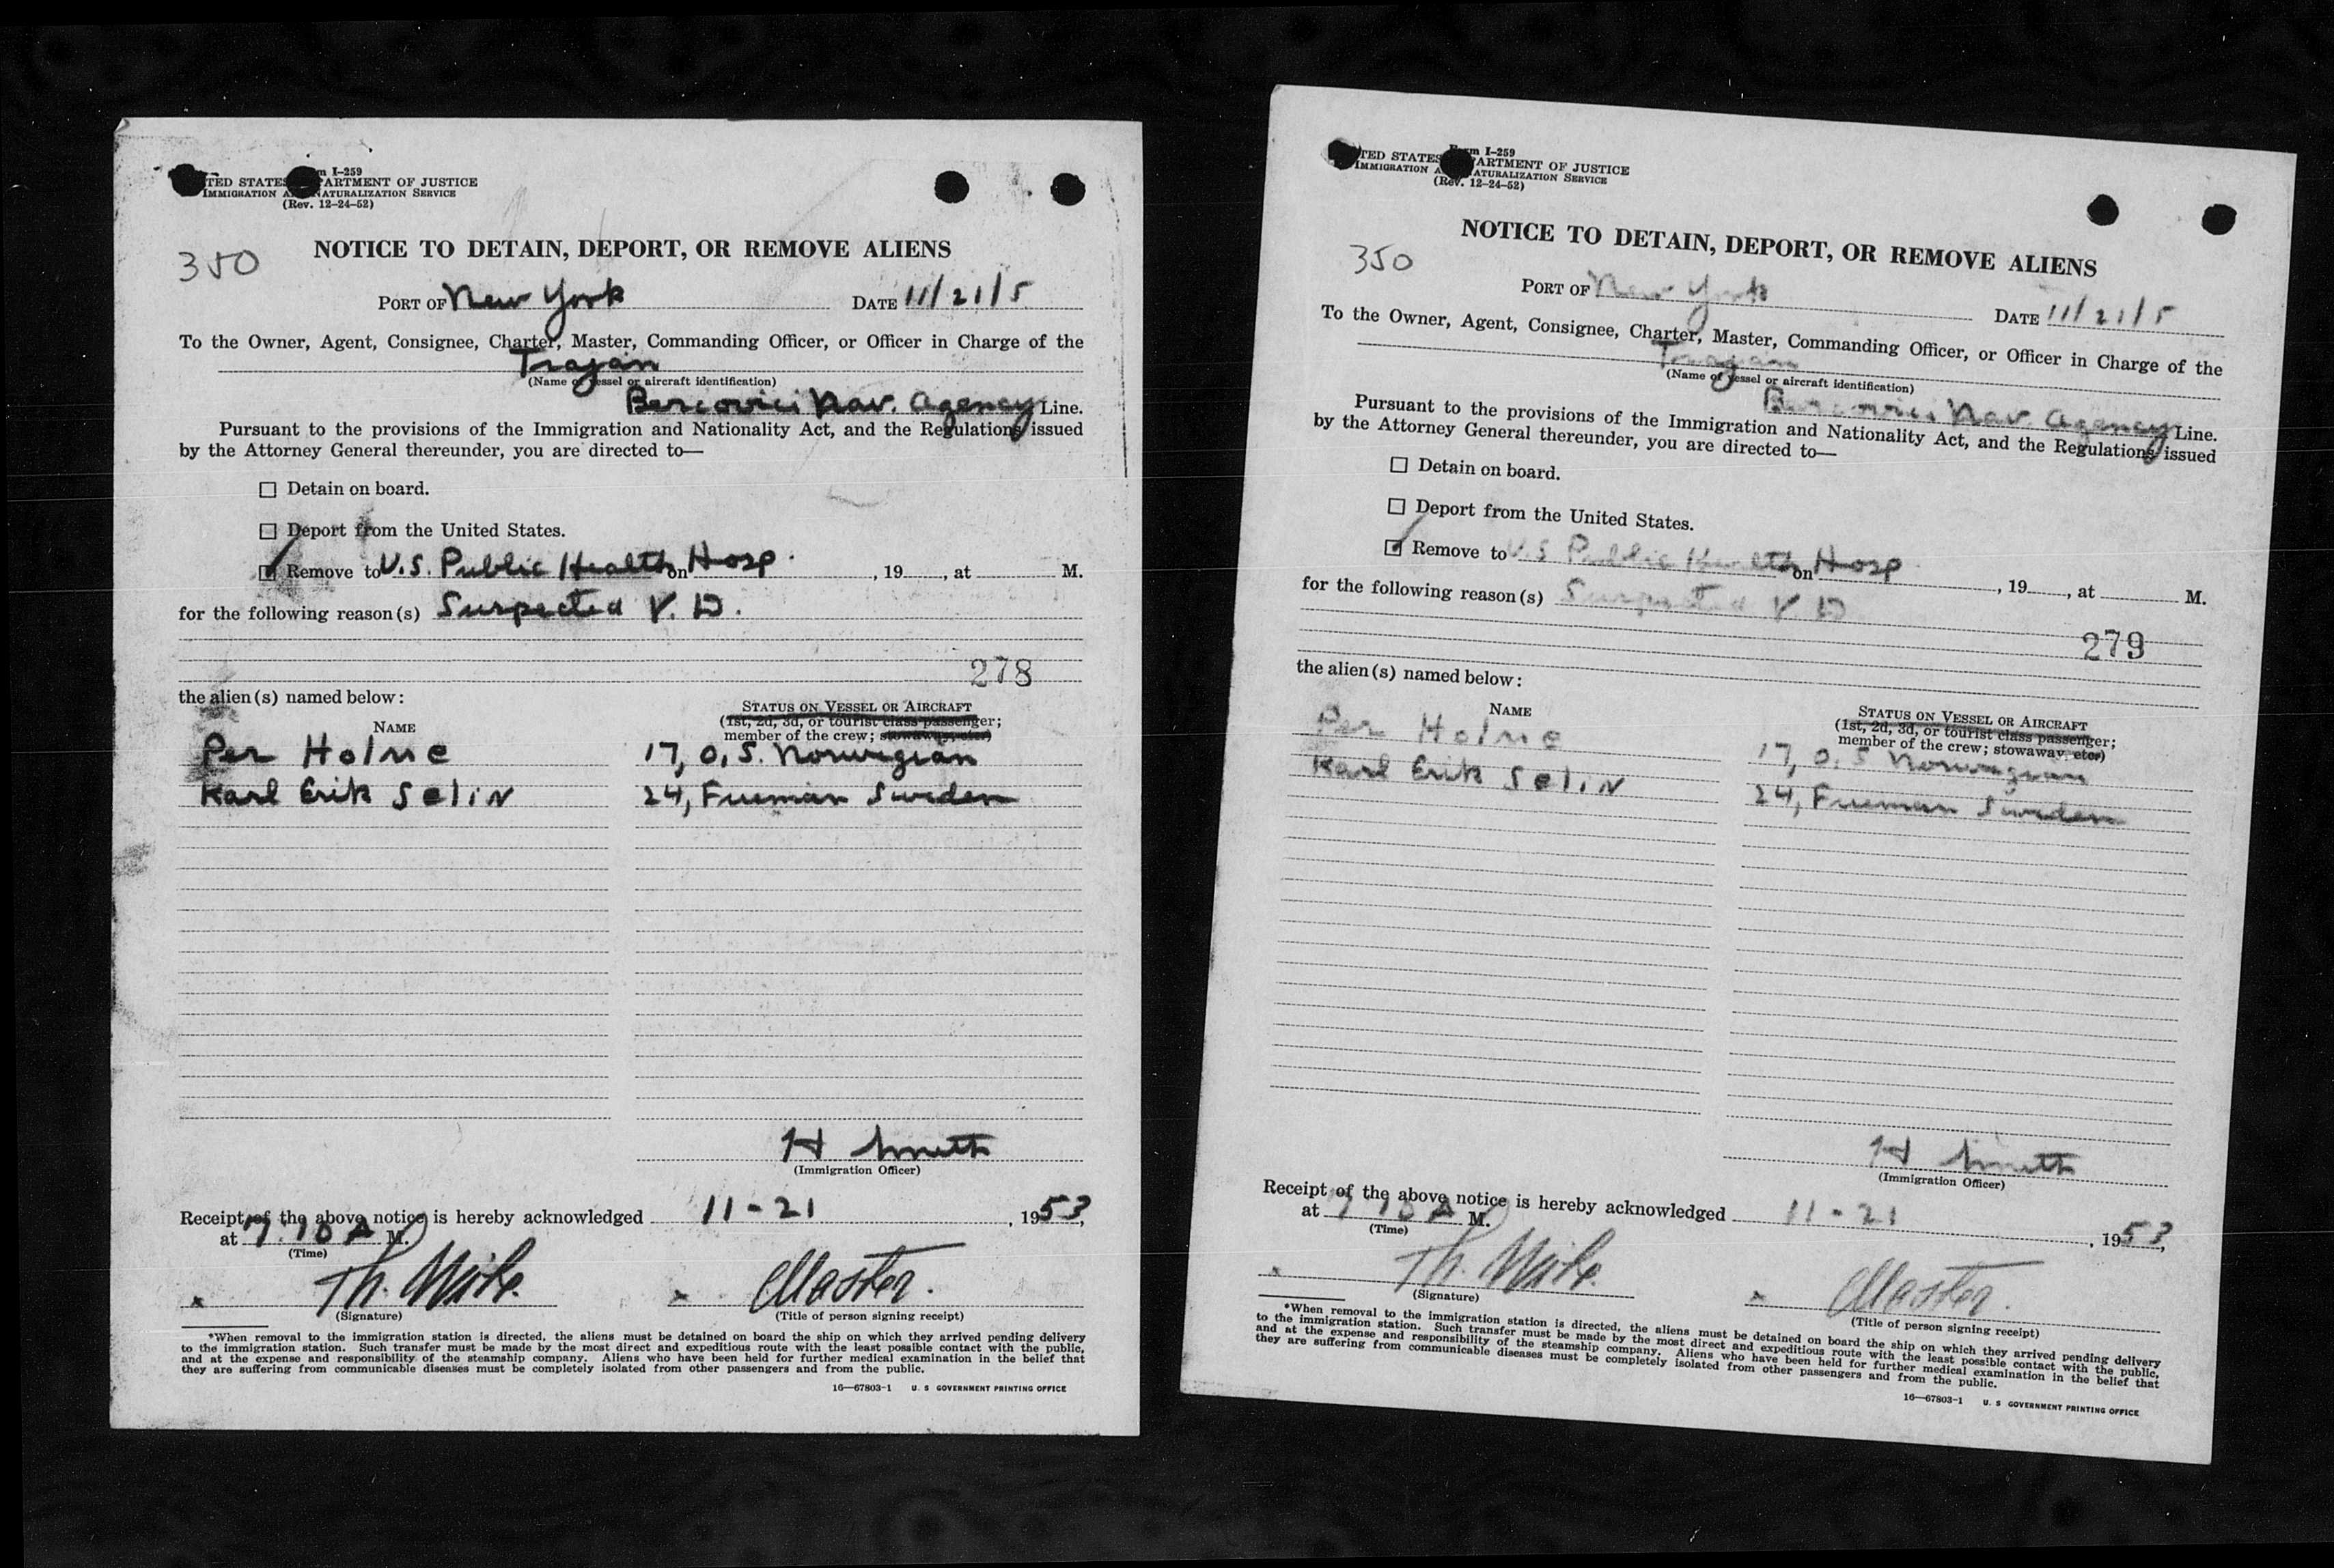 Form I-259
UNITED STATES DEPARTMENT OF JUSTICE
IMMIGRATION AND NATURALIZATION SERVICE
(Rev. 12-24-52)
350
NOTICE TO DETAIN, DEPORT, OR REMOVE ALIENS
PORT OF New York DATE 11/21/5
To the Owner, Agent, Consignee, Charter, Master, Commanding Officer, or Officer in Charge of the
Trajan
(Name of vessel or aircraft identification)
Bercovici Nav. Agency Line.
Pursuant to the provisions of the Immigration and Nationality Act, and the Regulations issued
by the Attorney General thereunder, you are directed to—
☐ Detain on board.
☐ Deport from the United States.
☑ Remove to U.S. Public Health on Hosp. , 19 , at M.
for the following reason(s) Suspected V. D.
278
the alien(s) named below:
NAME
STATUS ON VESSEL OR AIRCRAFT
(1st, 2d, 3d, or tourist class passenger;
member of the crew; stowaway, etc.)
Per Holne 17, O.S. Norwegian
Karl Erik Selin 24, Fireman Sweden
H Smith
(Immigration Officer)
Receipt of the above notice is hereby acknowledged 11-21 , 1953,
at 7.10 A M.
(Time)
Th. Master.
(Signature) (Title of person signing receipt)
*When removal to the immigration station is directed, the aliens must be detained on board the ship on which they arrived pending delivery
to the immigration station. Such transfer must be made by the most direct and expeditious route with the least possible contact with the public,
and at the expense and responsibility of the steamship company. Aliens who have been held for further medical examination in the belief that
they are suffering from communicable diseases must be completely isolated from other passengers and from the public.
16—67803-1 U. S GOVERNMENT PRINTING OFFICE
Form I-259
UNITED STATES DEPARTMENT OF JUSTICE
IMMIGRATION AND NATURALIZATION SERVICE
(Rev. 12-24-52)
350
NOTICE TO DETAIN, DEPORT, OR REMOVE ALIENS
PORT OF New York DATE 11/21/5
To the Owner, Agent, Consignee, Charter, Master, Commanding Officer, or Officer in Charge of the
Trajan
(Name of vessel or aircraft identification)
Bercovici Nav. Agency Line.
Pursuant to the provisions of the Immigration and Nationality Act, and the Regulations issued
by the Attorney General thereunder, you are directed to—
☐ Detain on board.
☐ Deport from the United States.
☑ Remove to U.S. Public Health on Hosp. , 19 , at M.
for the following reason(s) Suspected V D
279
the alien(s) named below:
NAME
STATUS ON VESSEL OR AIRCRAFT
(1st, 2d, 3d, or tourist class passenger;
member of the crew; stowaway, etc.)
Per Holne 17, O.S Norwegian
Karl Erik Selin 24, Fireman Sweden
H Smith
(Immigration Officer)
Receipt of the above notice is hereby acknowledged 11-21 , 1953,
at 7 10 A M.
(Time)
Th. Master.
(Signature) (Title of person signing receipt)
*When removal to the immigration station is directed, the aliens must be detained on board the ship on which they arrived pending delivery
to the immigration station. Such transfer must be made by the most direct and expeditious route with the least possible contact with the public,
and at the expense and responsibility of the steamship company. Aliens who have been held for further medical examination in the belief that
they are suffering from communicable diseases must be completely isolated from other passengers and from the public.
16—67803-1 U. S GOVERNMENT PRINTING OFFICE